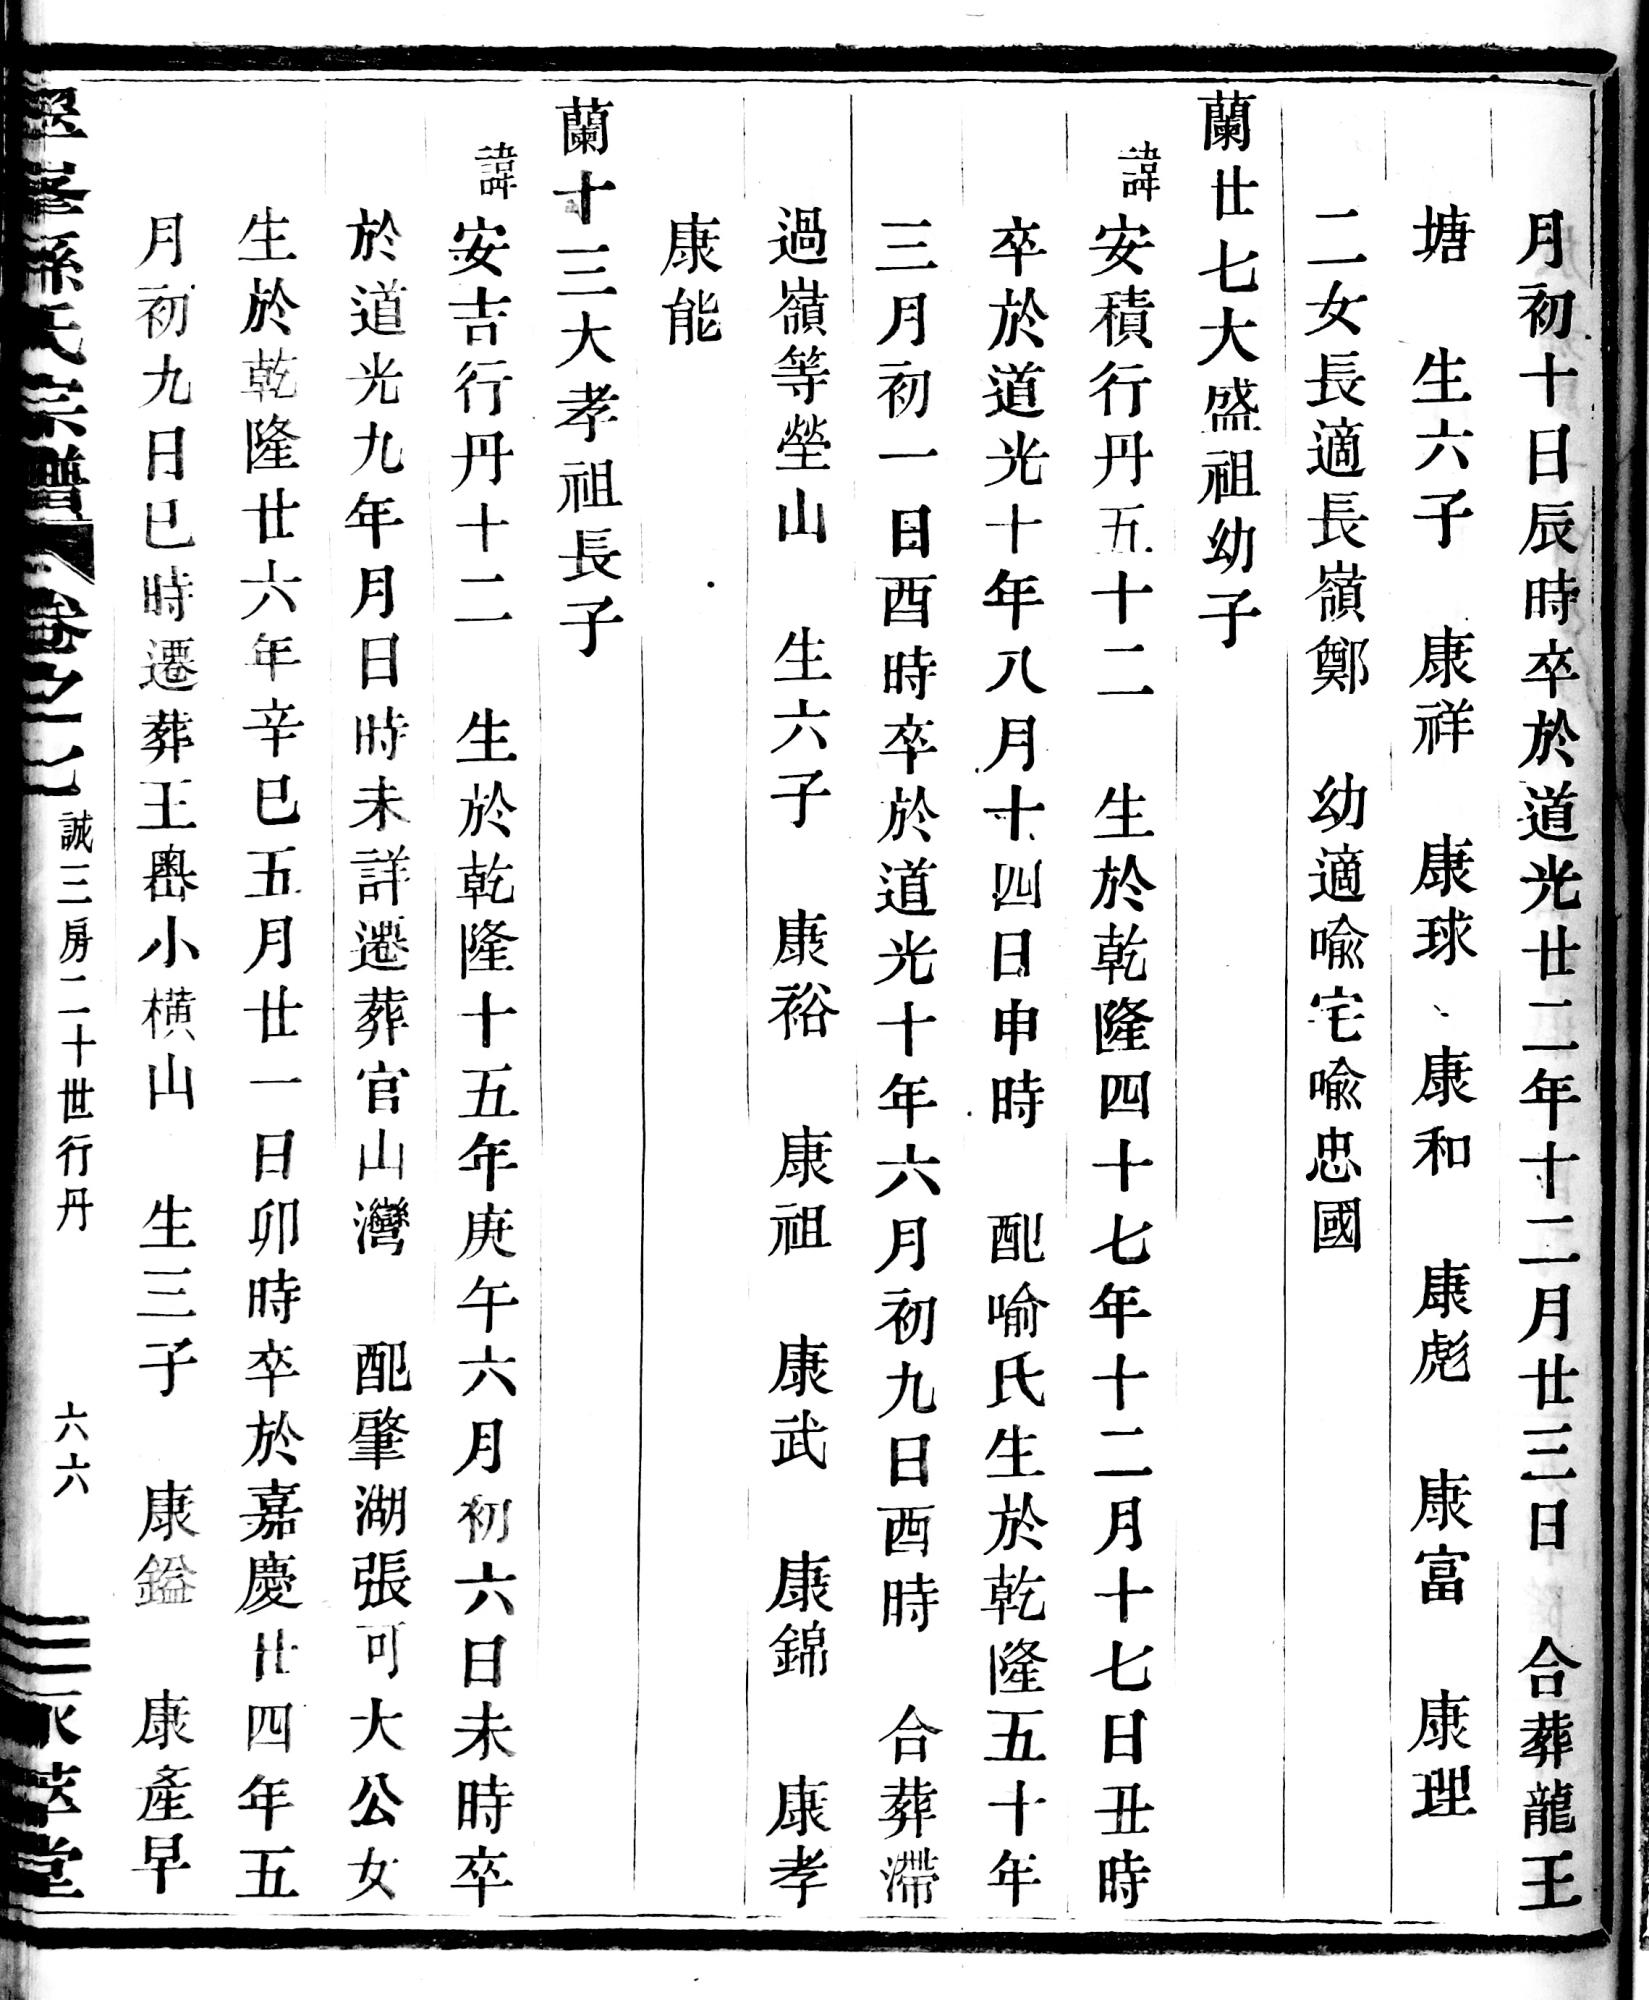 月初十日辰時卒於道光廿二年十二月廿三日　合葬龍王
塘　生六子　康祥　康球、康和　康彪　康富　康理
二女長適長嶺鄭　幼適喻宅喻忠國
蘭廿七大盛祖幼子
諱安積行丹五十二　生於乾隆四十七年十二月十七日丑時
卒於道光十年八月十四日申時　配喻氏生於乾隆五十年
三月初一日酉時卒於道光十年六月初九日酉時　合葬滯
過嶺等塋山　生六子　康裕　康祖　康武　康錦　康孝
康能
蘭十三大孝祖長子
諱安吉行丹十二　生於乾隆十五年庚午六月初六日未時卒
於道光九年月日時未詳遷葬官山灣　配肇湖張可大公女
生於乾隆廿六年辛巳五月廿一日卯時卒於嘉慶廿四年五
月初九日巳時遷葬王嶴小橫山　生三子　康鎰　康產早
峯孫氏宗譜　卷之一七　誠三房二十世行丹　六六　萃堂